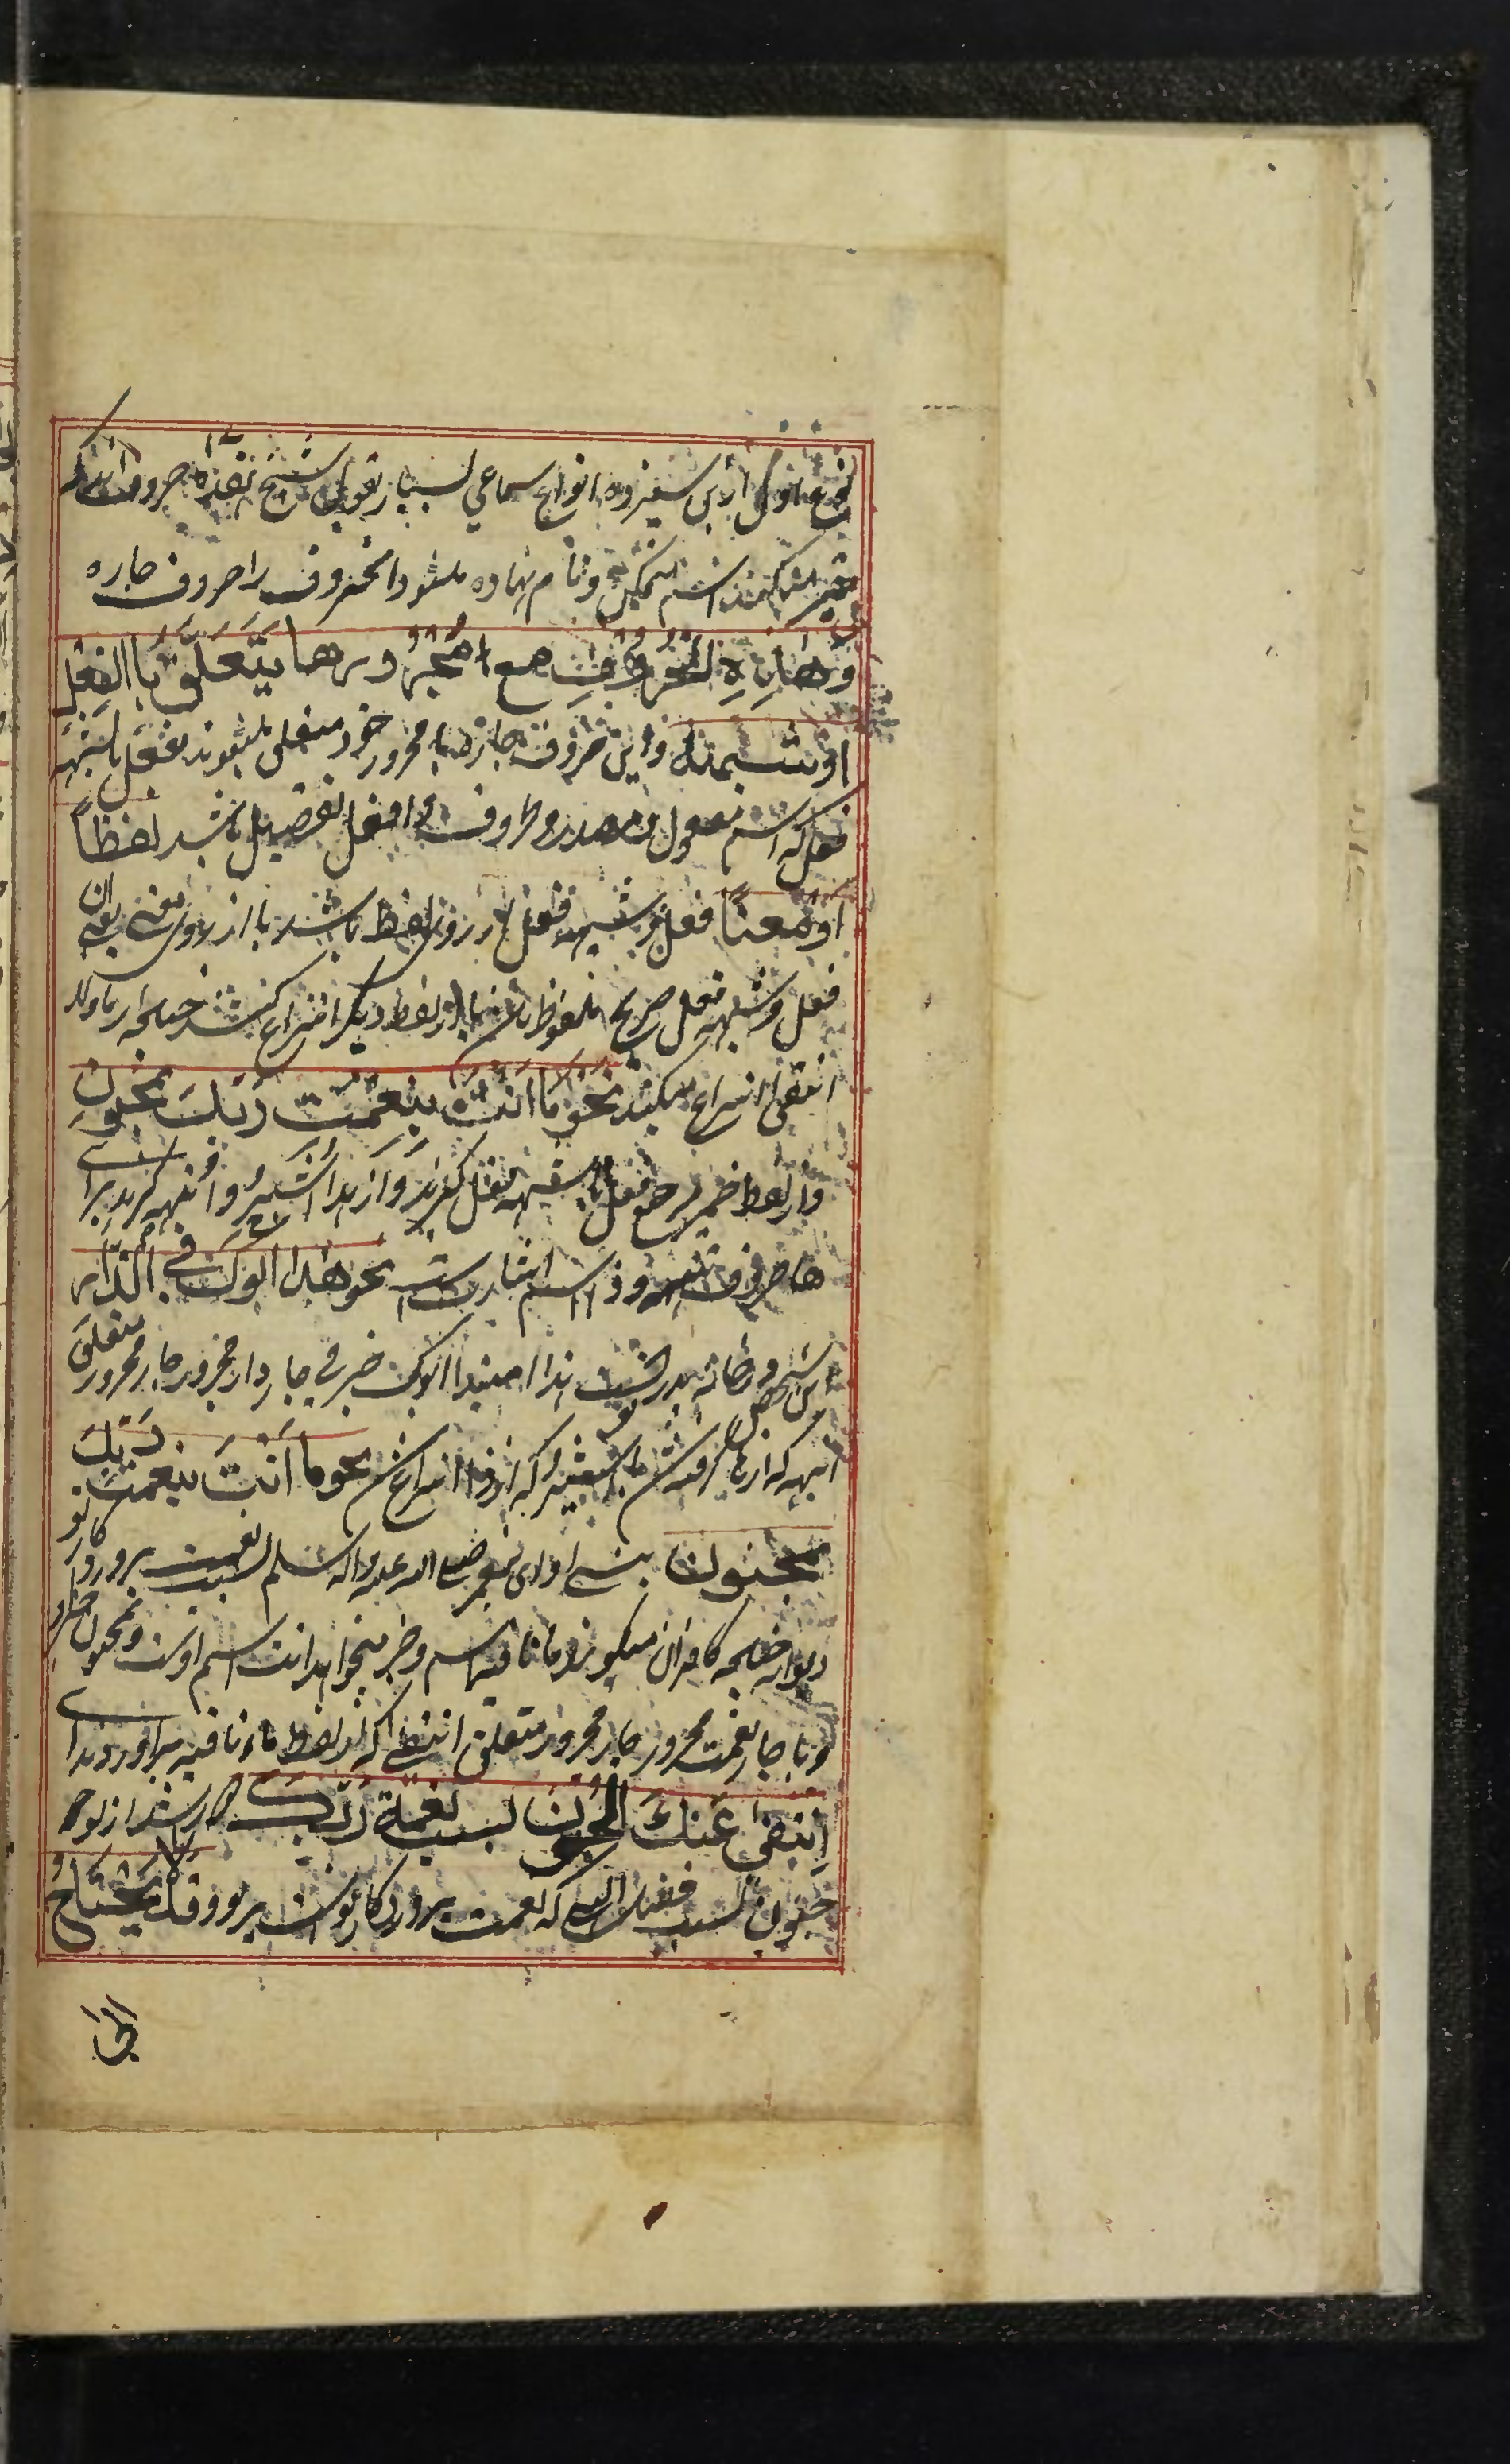 نوع اول از بس سیزده انواع سماعی بسیار بقول شیخ هفده حروف اند که
جر میکنند اسم متمکن و نام نهاده میشود انحروف را حروف جاره
وَهٰذِهِ الْحُرُوْفُ مع مَجْرُوْرِها يَتَعَلَّقُ بِاالفِعْلِ
اَوْ شبهه واین حروف جاره با مجرور خود متعلق میشوند بفعل یا شبهه
فعل که اسم مفعول و مصدر و ظروف و افعل تفضیل باشد لفظاً
اَوْ مَعناً فعل و شبهه فعل از روی لفظ باشد یا از روی معنی یعنی ان
فعل و شبهه فعل صریح ملفوظ باشد یا از لفظ دیگر انتزاع کنند چنانچه از ماولا
انتفی انتزاع میکنند نَحْو مَا اَنْتَ بِنِعْمَتِ رَبِّكَ بِمَجْنُون
واز لفظ ضمیر مرجع فعل یا شبهه فعل گیرند و از هذا اُشِیْرُ و اُنَبِّهُ گیرند برای
ها حروف تنبیه و ذا اسم اشارتست نحو هٰذا اَبُوْكَ فِي الدَّارِ
این شخص در خانه پدر تست هذا مبتدا ابوک خبر فی جار دار مجرور جار مجرور متعلق
انبه که از ها گرفته شد یا اشیر که از ذا انتزاع شد نحو ما اَنْتَ بنعمت رَبِّكَ
بمجنون نیستی تو ای پیغمبر صلی الله علیه واله وسلم بسبب نعمت پروردگار تو
دیوانه چنانچه کافران میگویند ما نافیه اسم و خبر میخواهد انت اسم اوست و بمجنون خبر او
وبا جار نعمت مجرور جار مجرور متعلق انتفی که از لفظ ماء نافیه براوردند ای
اِنْتَفىٰ عَنْكَ الجُنُوْنُ بسبب نعمة رَبِّكَ دور شد از تو
جنون بسبب فضل الهی که نعمت پروردگار تو است بر تو وَقَدْ يَحْتَاجُ
الی